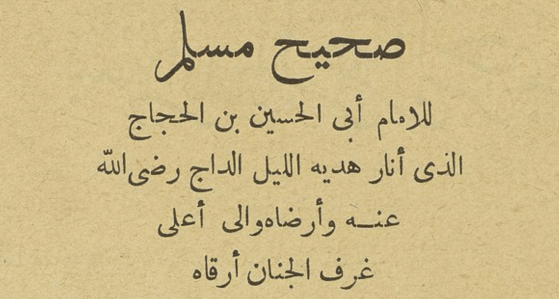 صحيح مسلم
للامام أبى الحسين بن الحجاج
الذى أنار هديه الليل الداج رضى الله
عنـه وأرضاه والى أعلى
غرف الجنان أرقاه